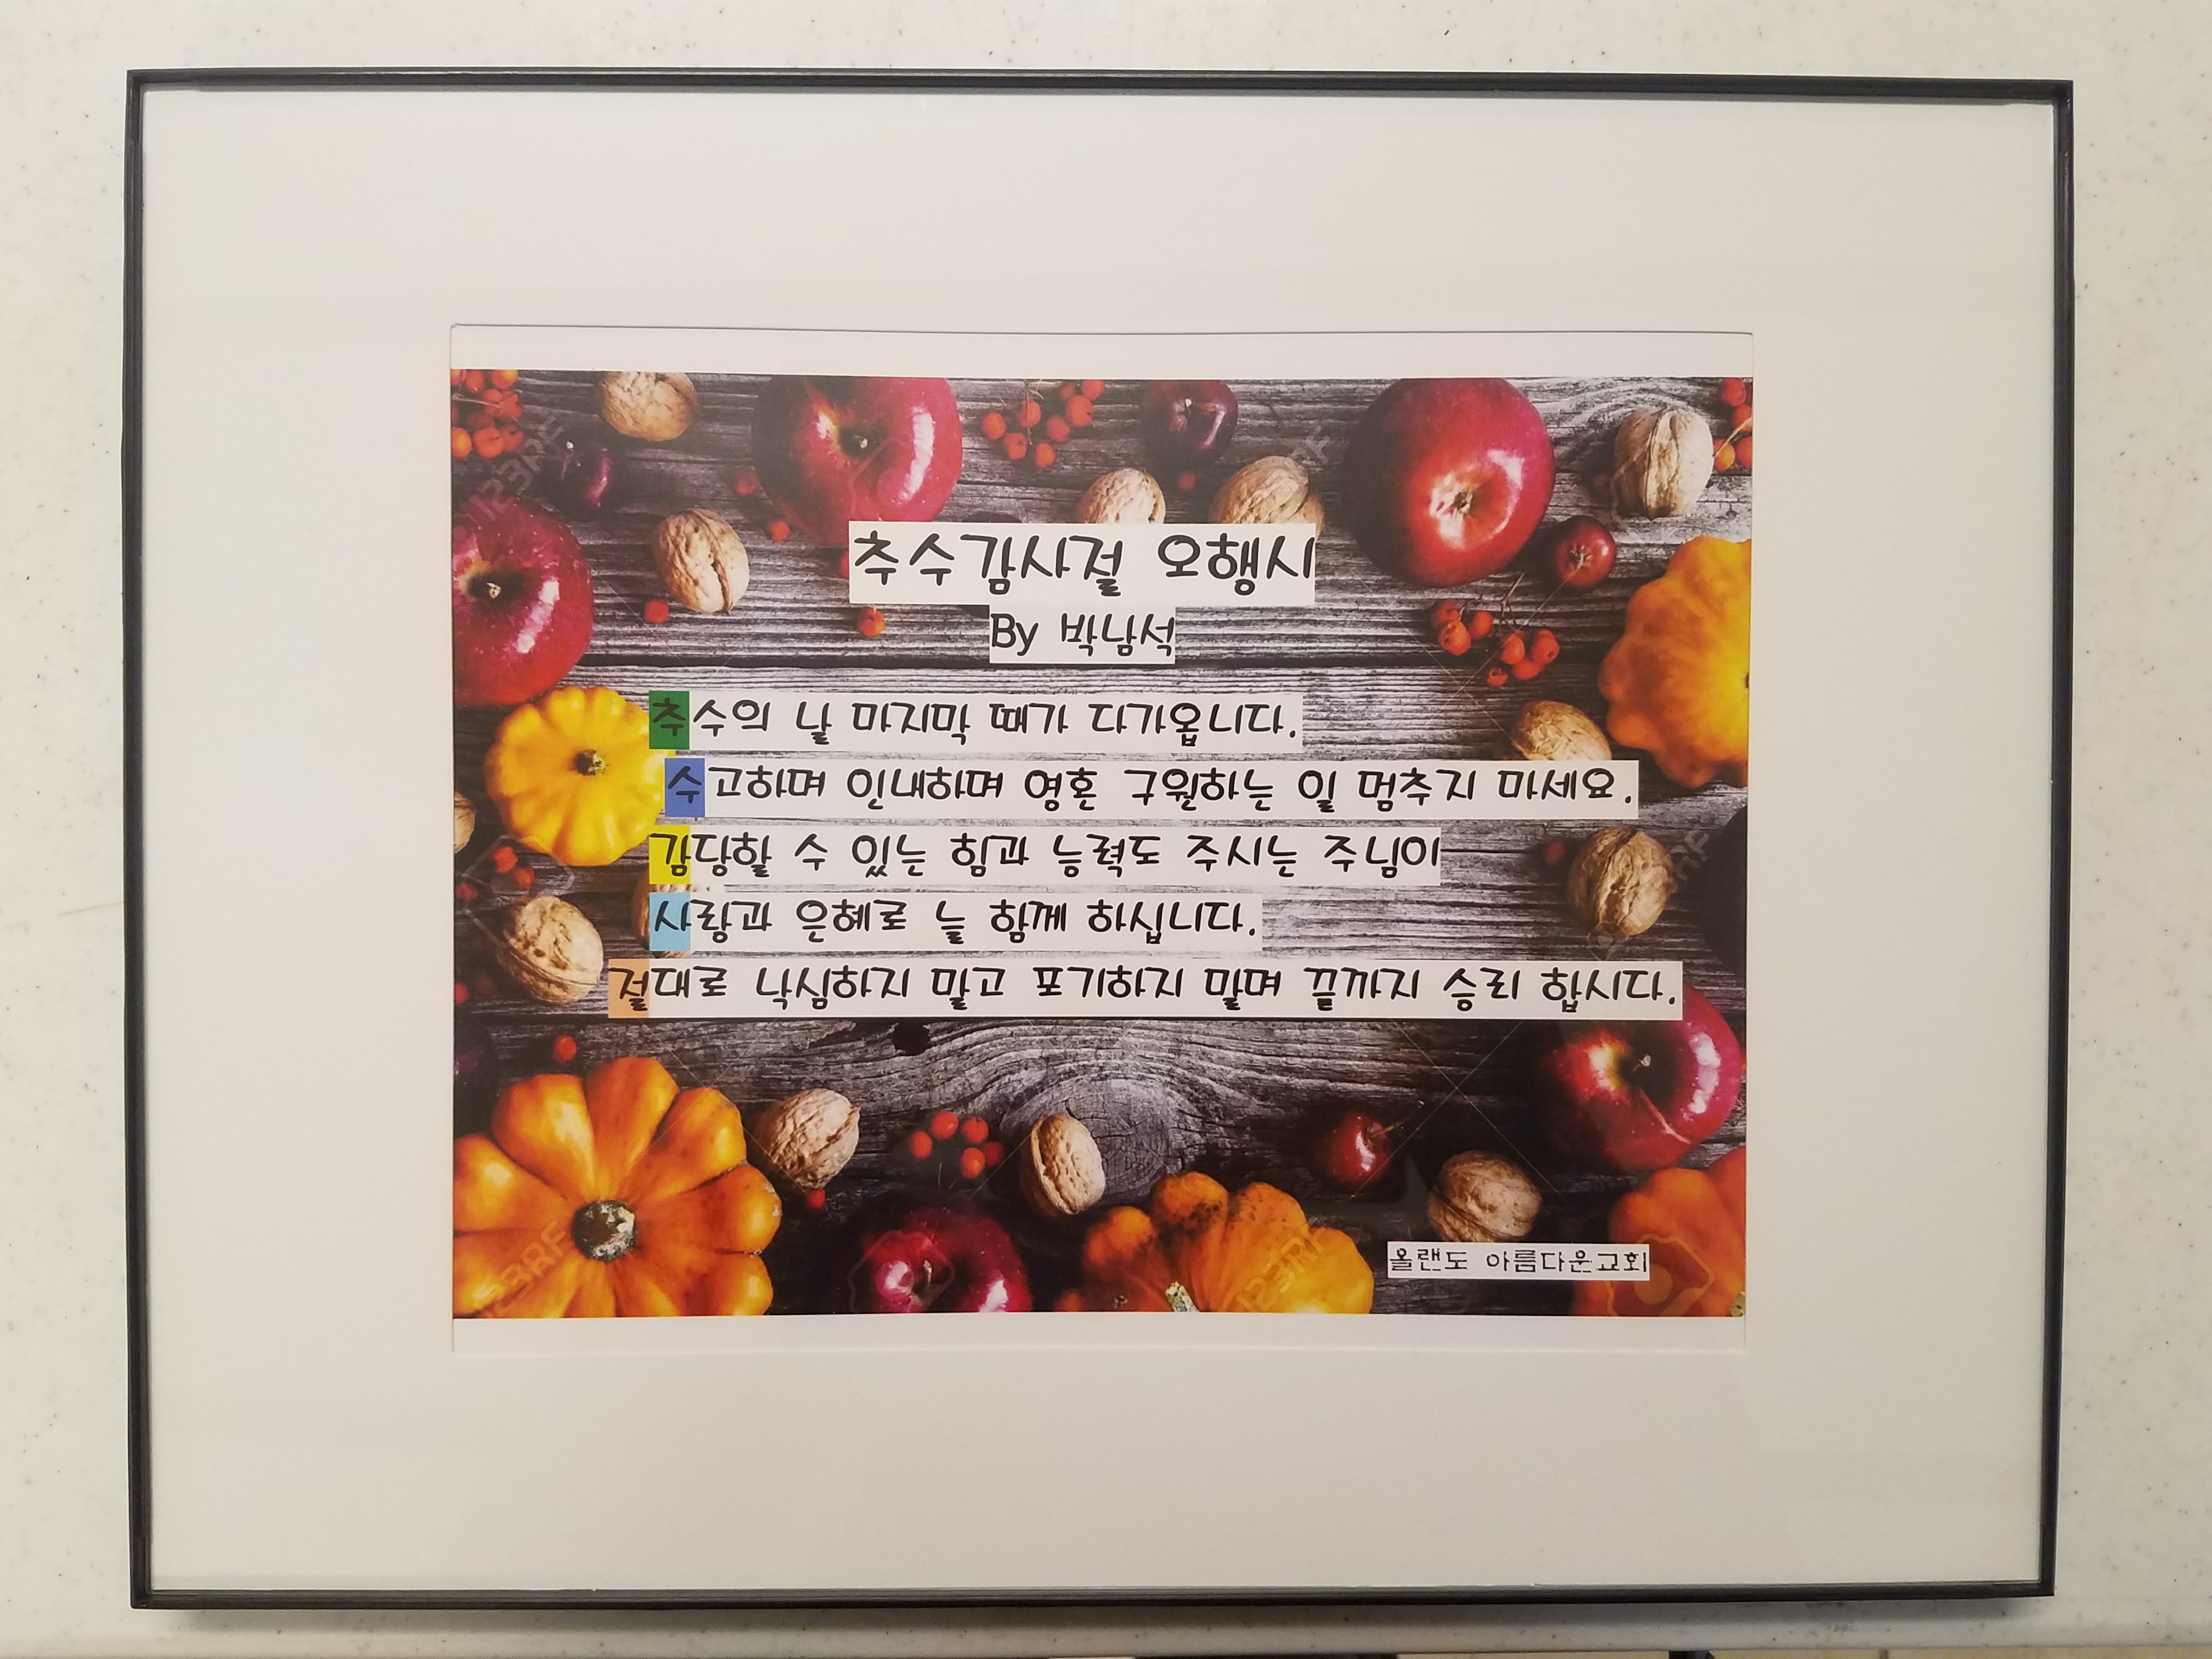 추수감사절 오행시
By 박남석
추수의 날 마지막 때가 다가옵니다.
수고하며 인내하며 영혼 구원하는 일 멈추지 마세요.
감당할 수 있는 힘과 능력도 주시는 주님이
사랑과 은혜로 늘 함께 하십니다.
절대로 낙심하지 말고 포기하지 말며 끝까지 승리 합시다.
올랜도 아름다운교회
123RF
123RF
123RF